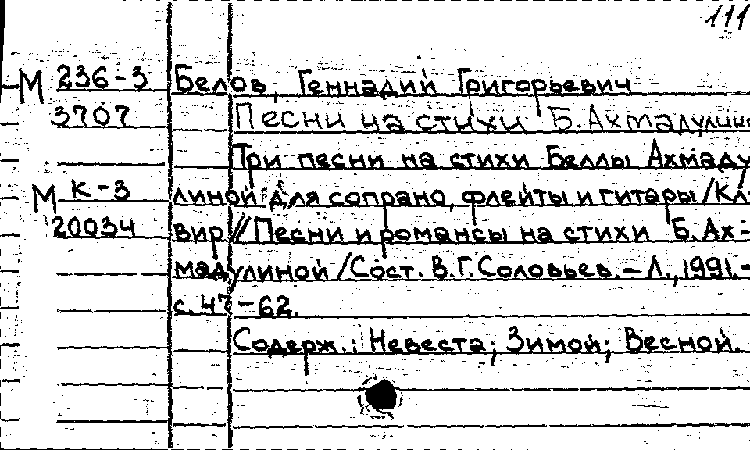 111
М 236-3 Белов, Геннадий Григорьевич
3707 Песни на стихи Б.Ахмадулин
Три песни на стихи Беллы Ахмаду
М К-3 линой для сопрано, флейты и гитары/Кла
20034 вир//Песни и романсы на стихи Б. Ах-
мадулиной/Сост. В.Г.Соловьев.-Л.,1991.-
с.47-62.
Содерж.: Невеста; Зимой; Весной.